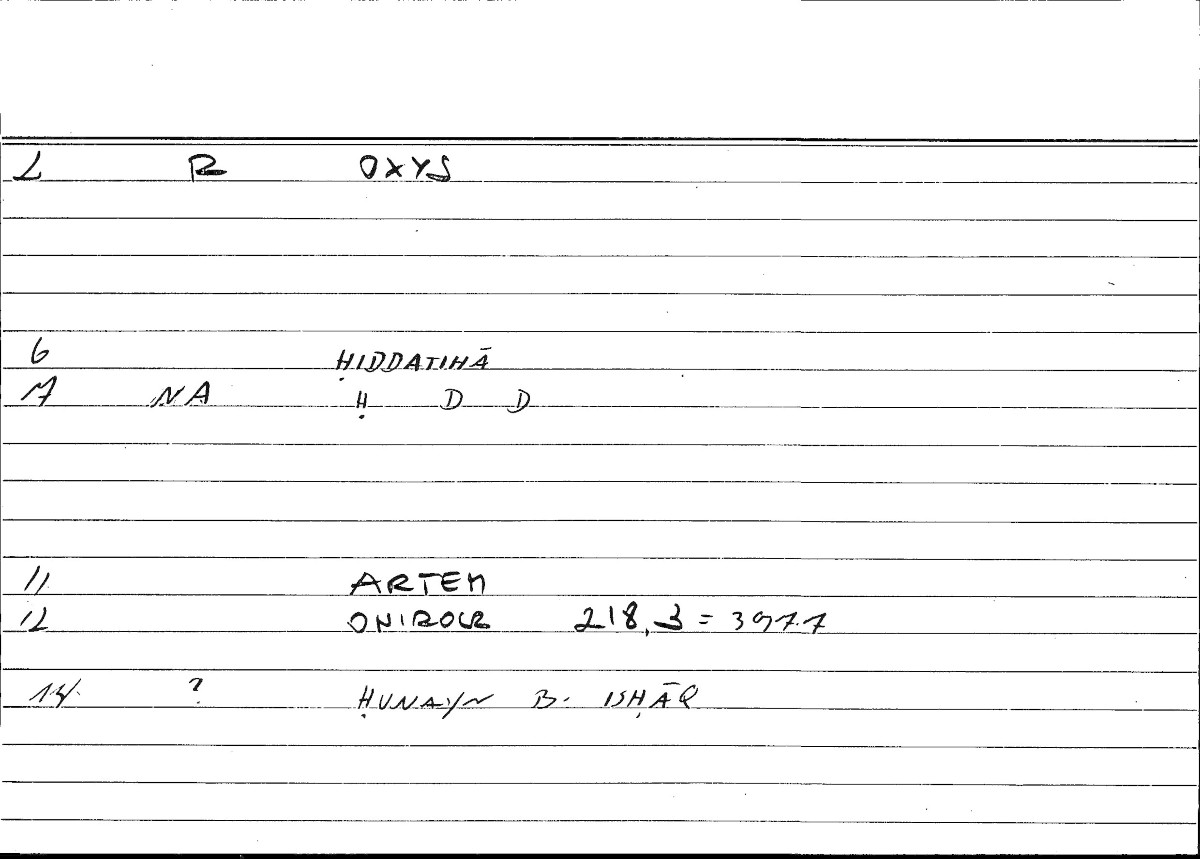 2 R OXYS
6 ḤIDDATIHĀ
7 NA Ḥ D D
11 ARTEM
12 ONIROCR 218,3 = 397.7
14 ? ḤUNAYN B. ISḤĀQ